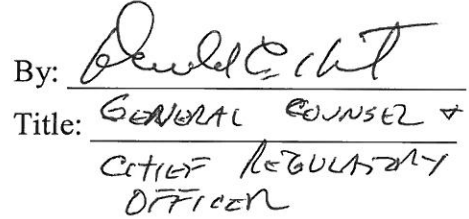 By:
Title: GENERAL COUNSEL &
CHIEF REGULATORY
OFFICER